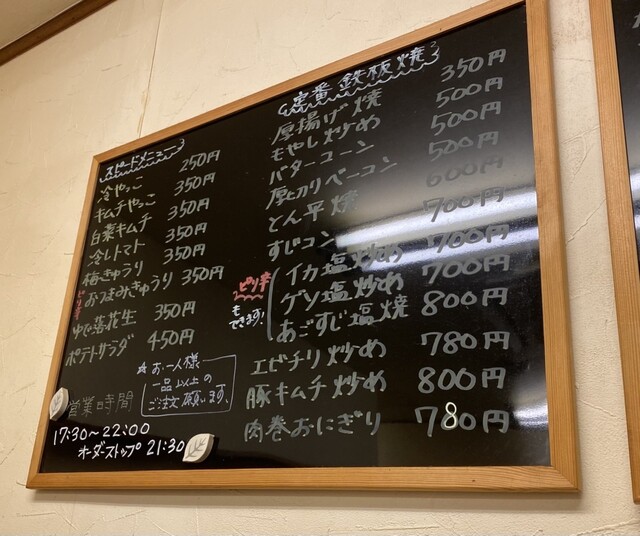 スピードメニュー
冷やっこ 250円
キムチやっこ 350円
白菜キムチ 350円
冷しトマト 350円
梅きゅうり 350円
ピリ辛 おつまみきゅうり 350円
ゆで落花生 350円
ポテトサラダ 450円
☆お一人様
一品以上の
ご注文願います。
営業時間
17:30～22:00
オーダーストップ 21:30
定番 鉄板焼
厚揚げ焼 350円
もやし炒め 500円
バターコーン 500円
厚切りベーコン 500円
とん平焼 600円
すじコン 700円
ピリ辛
もできます!
イカ塩炒め 700円
ゲソ塩炒め 700円
あごすじ塩焼 800円
エビチリ炒め 780円
豚キムチ炒め 800円
肉巻おにぎり 780円